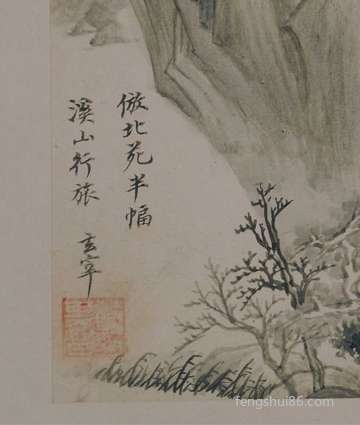 倣北苑半幅
溪山行旅
玄宰
fengshui86.com